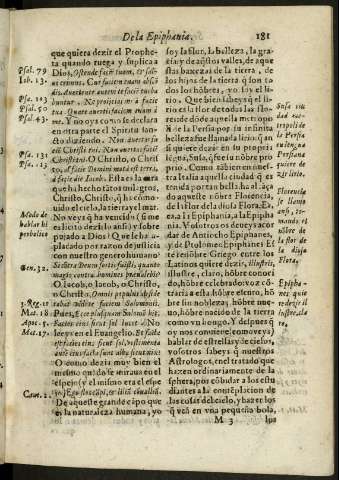 De la Epiphania. 181
que quiera dezir el Prophe-
ta quando ruega y suplica a
Dios, Ostende faciem tuam, & sal-
ui erimus. Cur faciem tuam abscō
dis. Auertente autem te faciē turba
buntur. Ne proijcias me à facie
tua. Quare auertis faciem tuam à
me. Y no oys como se declara
en otra parte el Spiritu san-
cto diziendo. Non auertas fa-
ciē Christi tui. Non auertas faciē
Christi tui. O Christo, o Christ
so, à facie Domini mota est terra,
à facie Dei Iacob. Esta es la cara
que ha hecho tātos milagros,
Christo, Christo, q̄ ha atemo-
rizado el cielo, la tierra, el mar.
No veys q̄ ha vencido (si me
es licito dezirlo ansi) y sobre
pujado a Dios? Que le ha a-
placado por razon de justicia
con nuestro genero humano:
Si cōtra Deum fortis fuisti, quanto
magis contra homines preualebis?
O Iacob, o Iacob, o Christo,
o Christo, Omnis populus desiderabat videre faciem Salomonis.
Pues, Ecce plusquam Salomon hic.
Facies eius sicut sol lucet. No
leeys en el Euangelio. Et facta
est facies eius sicut sol, vestimenta
autē eius facta sunt alba sicut nix.
O como dezia muy bien el
mismo quādo te miraua en el
espejo (y el mismo era el espe
jo) Ego flos cāpi, et liliū cōualliū.
De aqueste grande cāpo que
es la naturaleza humana, yo
soy la flor, la belleza, la gra-
sia y de aq̄stos valles, de aque
stas baxezas de la tierra, de
los hijos de la tierra, hijos
de los hōbres, yo soy el li-
rio. Que bien sabeys q̄ el li-
rio es la flor de todas las flo-
res de dōde aquella metropoli
de la Persia por su infinita
belleza fue llamada lirio: q̄ en
su lirio quiere dezir en su propria
lengua, Susa, q̄ fue su nōbre pro-
prio. Como tābien en nues-
tra Italia aquella ciudad q̄
entendays portan bella ha al-
cāça de aqueste nōbre Florencia,
de l flor de la diosa Flora. Ea,
Ea. a la Epiphania, a la Epipha
nia. Vosotros os deueys acor
dar de Antiocho Epiphanes,
y de Ptolomeo Epiphanes. El
renōbre Griego entre los
Latinos quiere dezir, illustris,
illustre, claro, hōbre conoci-
do, hōbre celebrado: voz cō-
traria a hōbre escuro, hōbre
hōbre sin nobleza, hōbre nue-
uo, hōbre nacido de la tierra
como vn hongo. Y despues q̄
oy nos conuiene como veys
hablar de estrellas y de cielos,
vosotros sabeys q̄ nuestros
Astrologos, en el tratado que
hazen ordinariamente de la
sphera, por cōbidar a los estu
diantes a la contemplacion de
las cosas del cielo, y hazer los
q̄ veā en vna pequeña bola,
M 3
Psal. 79
Iob. 13.
Psa. 103
Psal. 50
Psal. 43.
Psa. 131
Psa. 113
Modo de
hablar hi
perbolico
Gen. 32.
3. Reg. 10
Mat. 12.
Apoc. 5.
Mat. 17.
Cant. 2.
Susa ciu
dad me-
tropoli de
la Persia
en lengua
Persiana
quiere de
zir lirio.
Florencia
se llamo
ansi, to-
mando el
nōbre de
la flor de
la diosa
Flora.
Epipha-
nes quie
re dezir il
lustre, cla
ro.